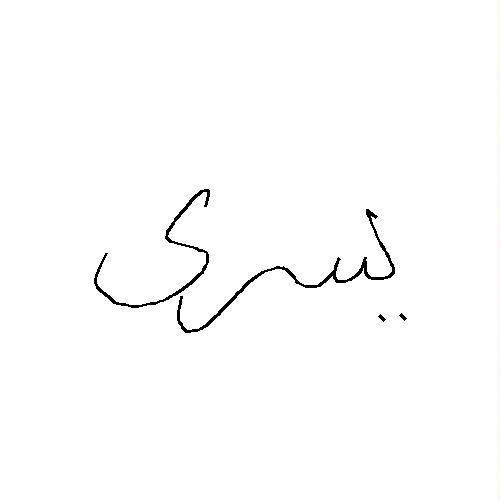 يسرى